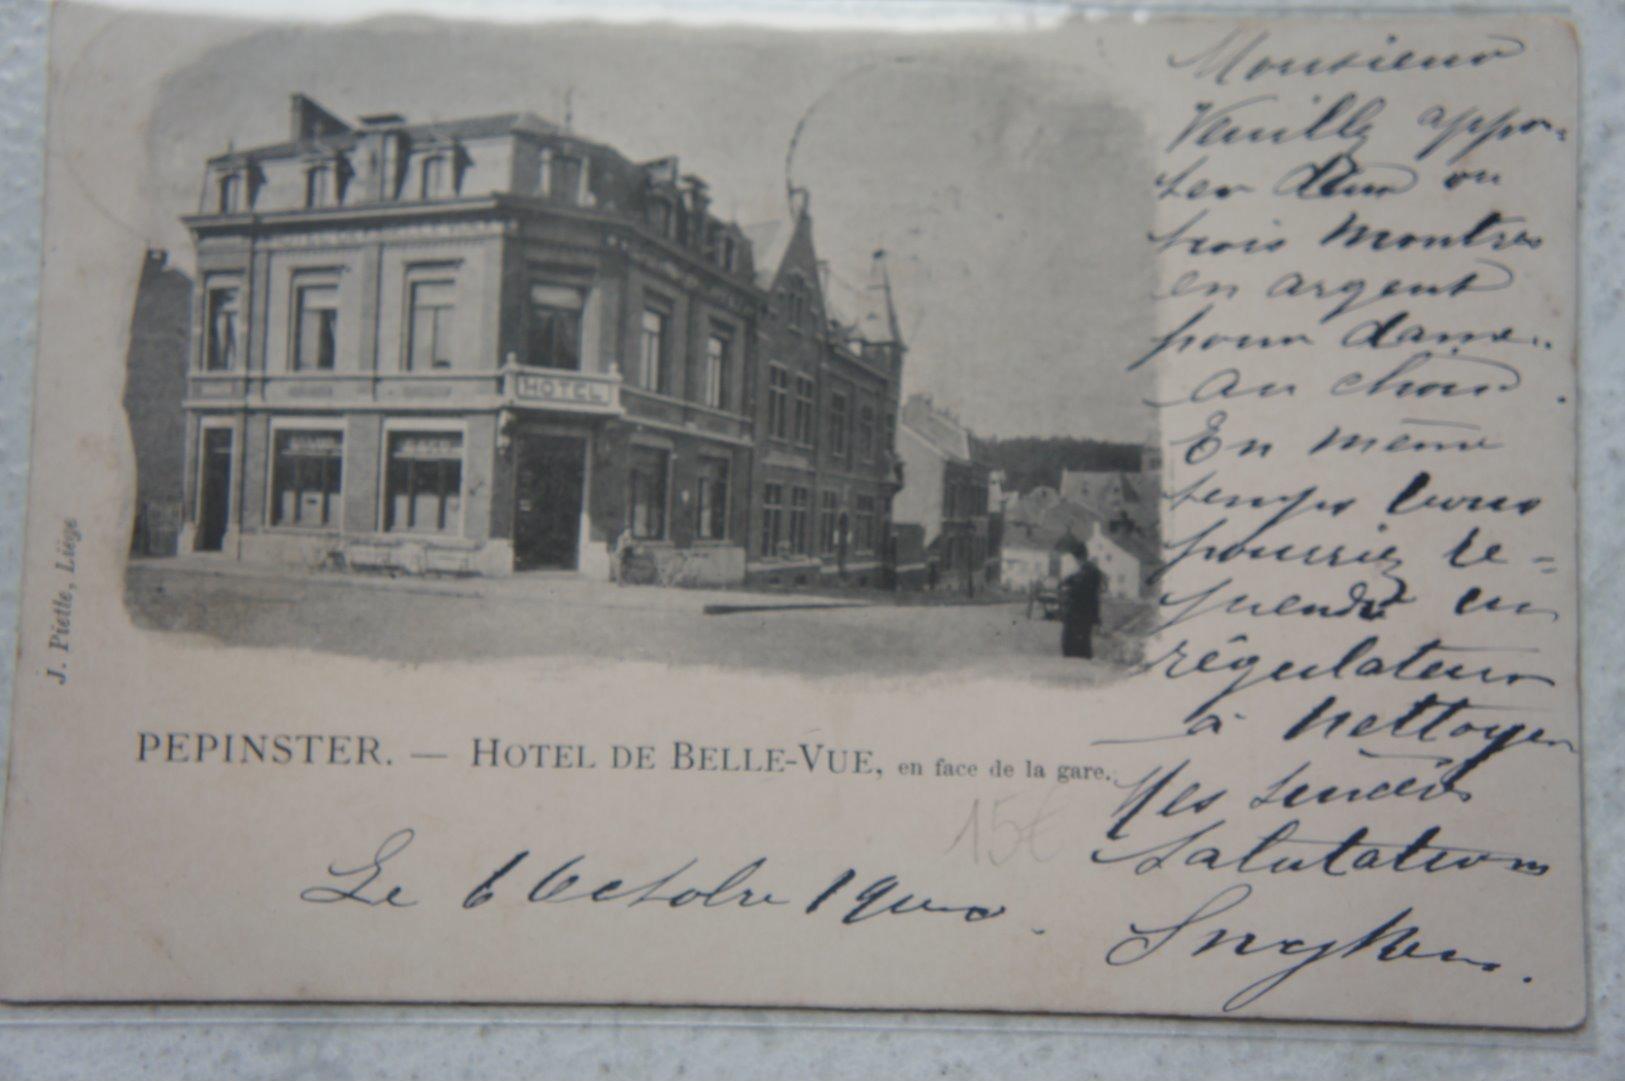 Monsieur
Veuillez appor-
ter deux ou
trois montres
en argent
pour dame.
au choix.
En même
temps vous
pourriez re-
prendre un
régulateur
à nettoyer
Mes sincères
Salutations
HOTEL
J. Piette, Liège
PEPINSTER. — HOTEL DE BELLE-VUE, en face de la gare.
15€
Le 6 Octobre 1900.